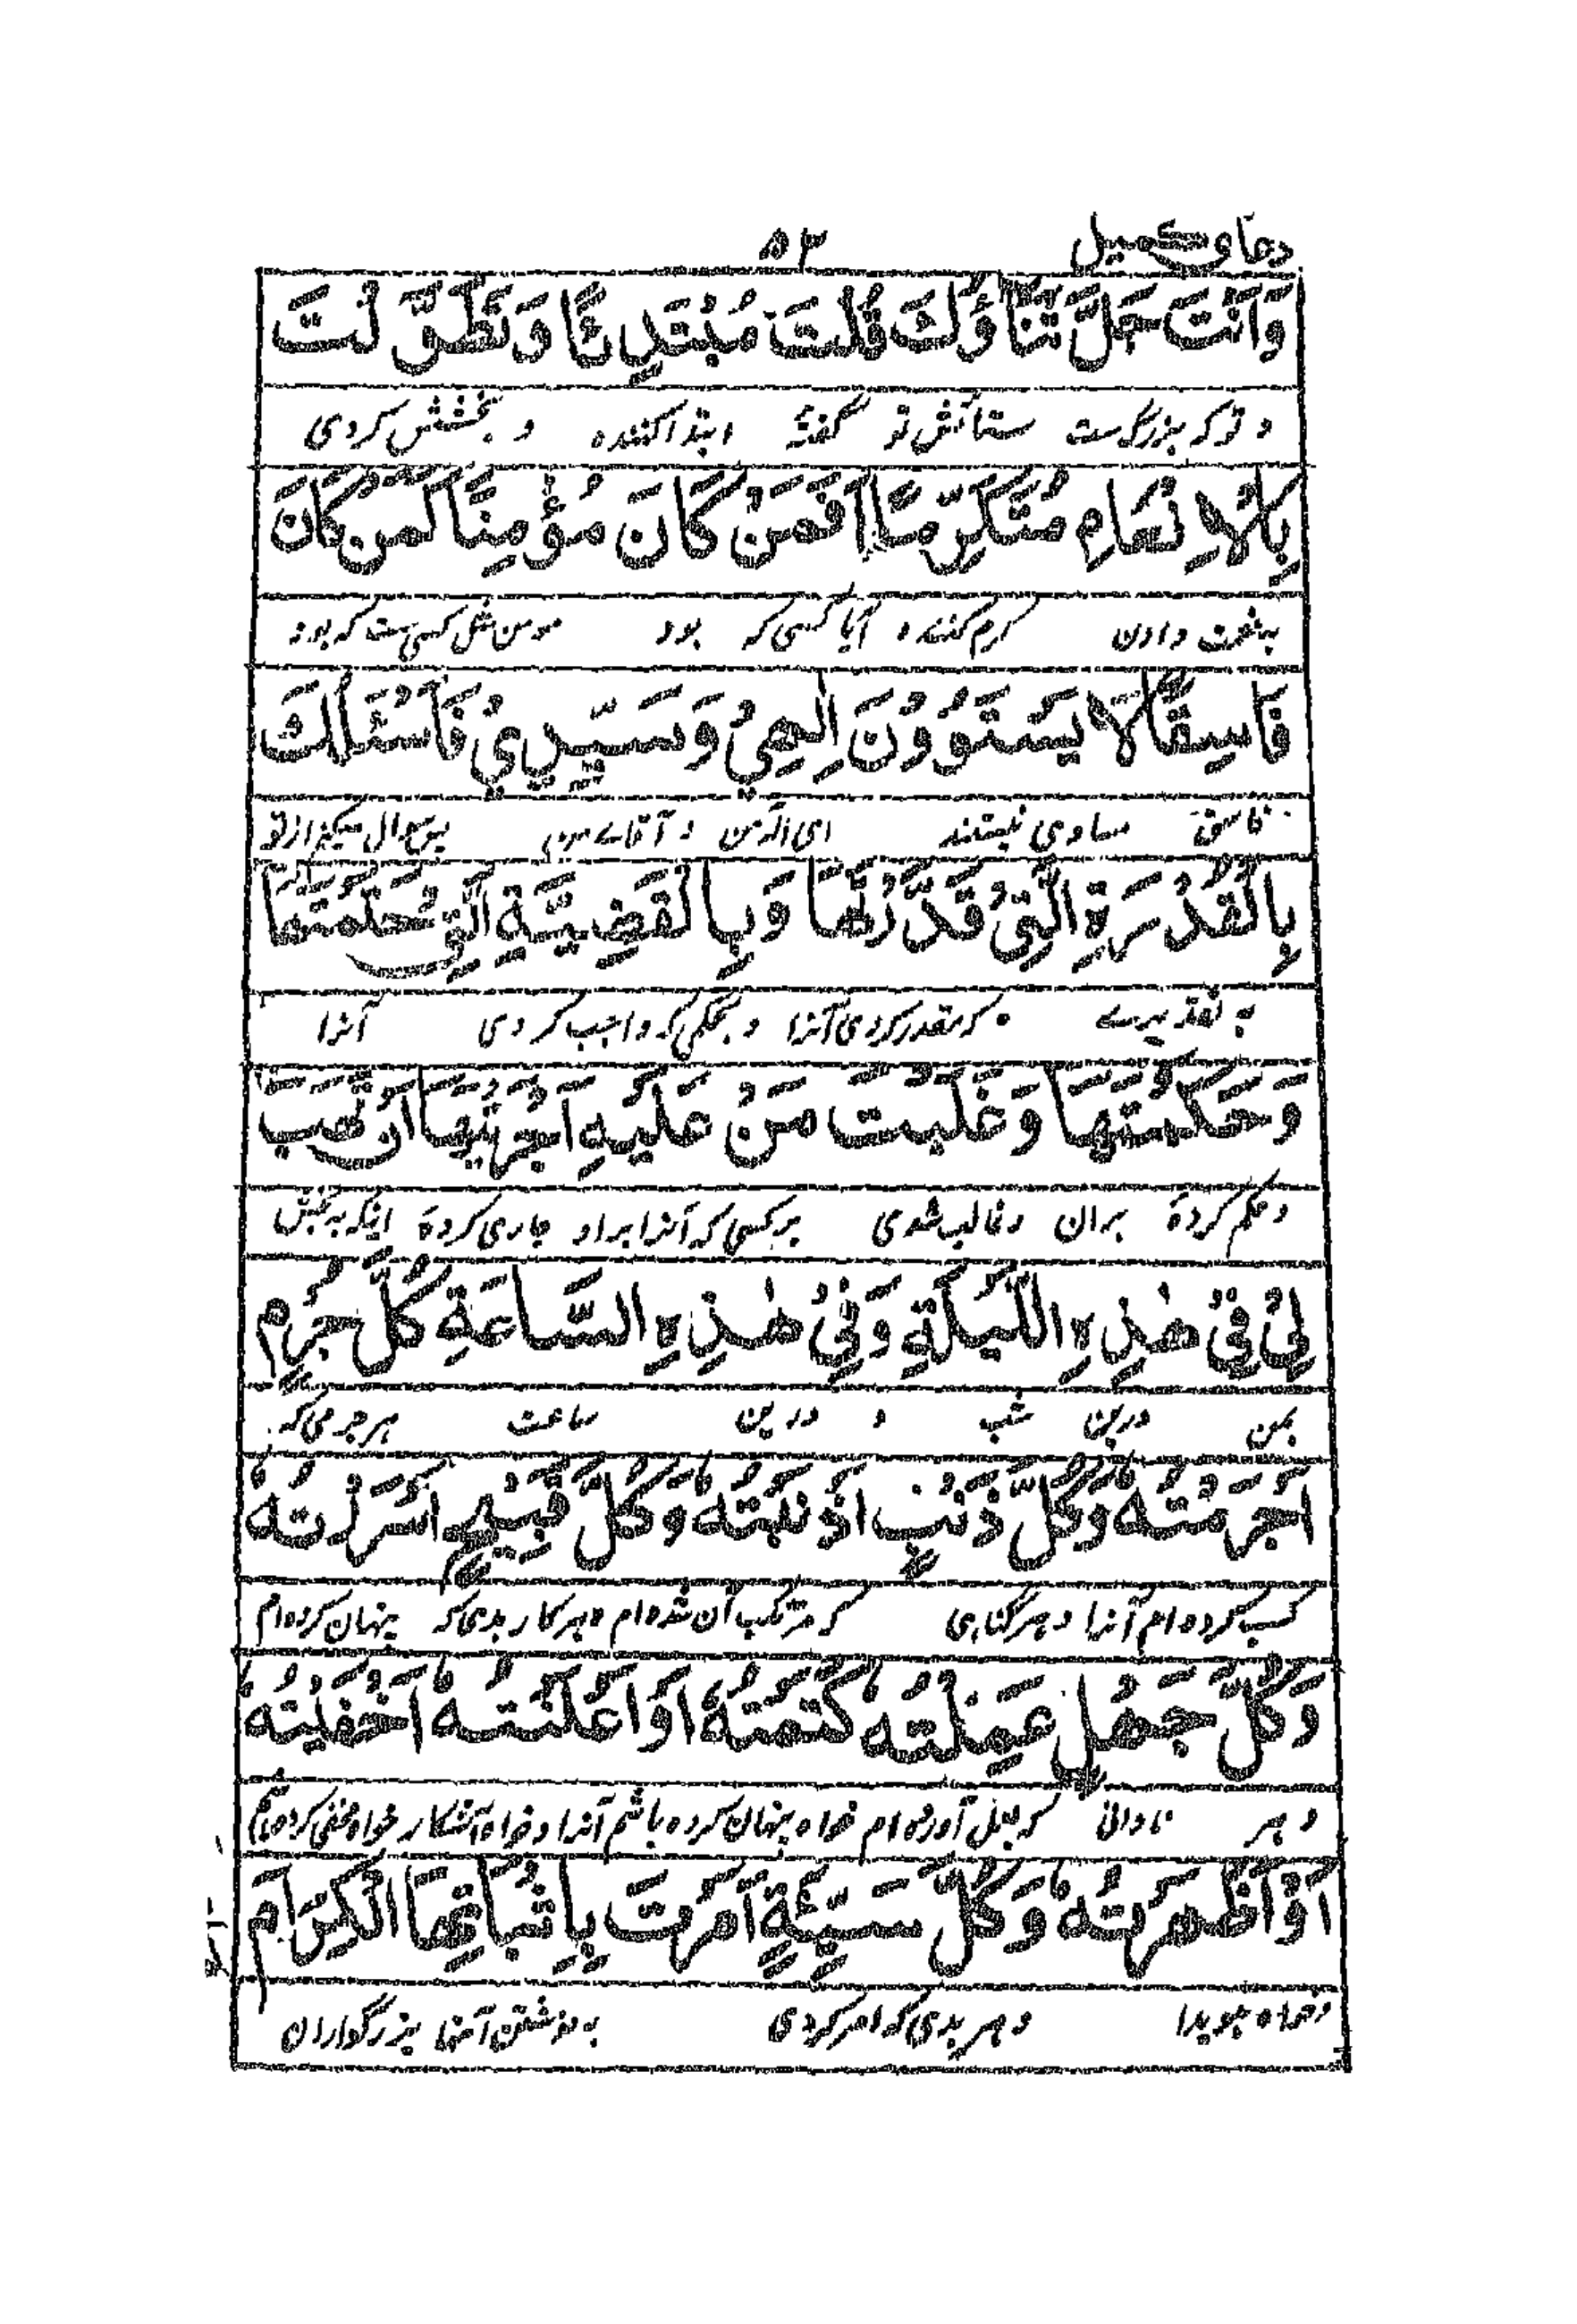 دعاء کمیل ۵۳
وَاَنْتَ جَلَّ ثَنَاؤُكَ قُلْتَ مُبْتَدِئًا وَتَطَوَّلْتَ
و تو که بزرگست ستائش تو گفتهٔ ابتدا کننده و بخشش کردی
بِالْاِنْعَامِ مُتَكَرِّمًا اَفَمَنْ كَانَ مُؤْمِنًا كَمَنْ كَانَ
به نعمت دادن کرم کننده آیا کسی که بود مومن مثل کسی ست که بود
فَاسِقًا لَا يَسْتَوُوْنَ اِلٰهِيْ وَسَيِّدِيْ فَاَسْئَلُكَ
فاسق مساوی نیستند ای الٰه من و آقاے من پس سوال میکنم از تو
بِالْقُدْرَةِ الَّتِيْ قَدَّرْتَهَا وَبِالْقَضِيَّةِ الَّتِيْ حَتَمْتَهَا
به تقدیرے که مقدر کردی آنرا و بحکمی که واجب کردی آنرا
وَحَكَمْتَهَا وَغَلَبْتَ مَنْ عَلَيْهِ اَجْرَيْتَهَا اَنْ تَهَبَ
و حکم کردهٔ بران و غالب شدی بر کسی که آنرا بر او جاری کردهٔ اینکه به بخشی
لِيْ فِيْ هٰذِهِ اللَّيْلَةِ وَفِيْ هٰذِهِ السَّاعَةِ كُلَّ جُرْمٍ
بمن درین شب و درین ساعت هر جرمی که
اَجْرَمْتُهٗ وَكُلَّ ذَنْبٍ اَذْنَبْتُهٗ وَكُلَّ قَبِيْحٍ اَسْرَرْتُهٗ
کسب کرده ام آنرا و هر گناهی که مرتکب آن شده ام و هر کار بدی که پنهان کرده ام
وَكُلَّ جَهْلٍ عَمِلْتُهٗ كَتَمْتُهٗ اَوْ اَعْلَنْتُهٗ اَخْفَيْتُهٗ
و هر نادانی که بعمل آورده ام خواه پنهان کرده باشم آنرا و خواه آشکار خواه مخفی کرده باشم
اَوْ اَظْهَرْتُهٗ وَكُلَّ سَيِّئَةٍ اَمَرْتَ بِاِثْبَاتِهَا الْكِرَامَ
و خواه هویدا و هر بدی که امر کردی به نوشتن آنها بزرگواران